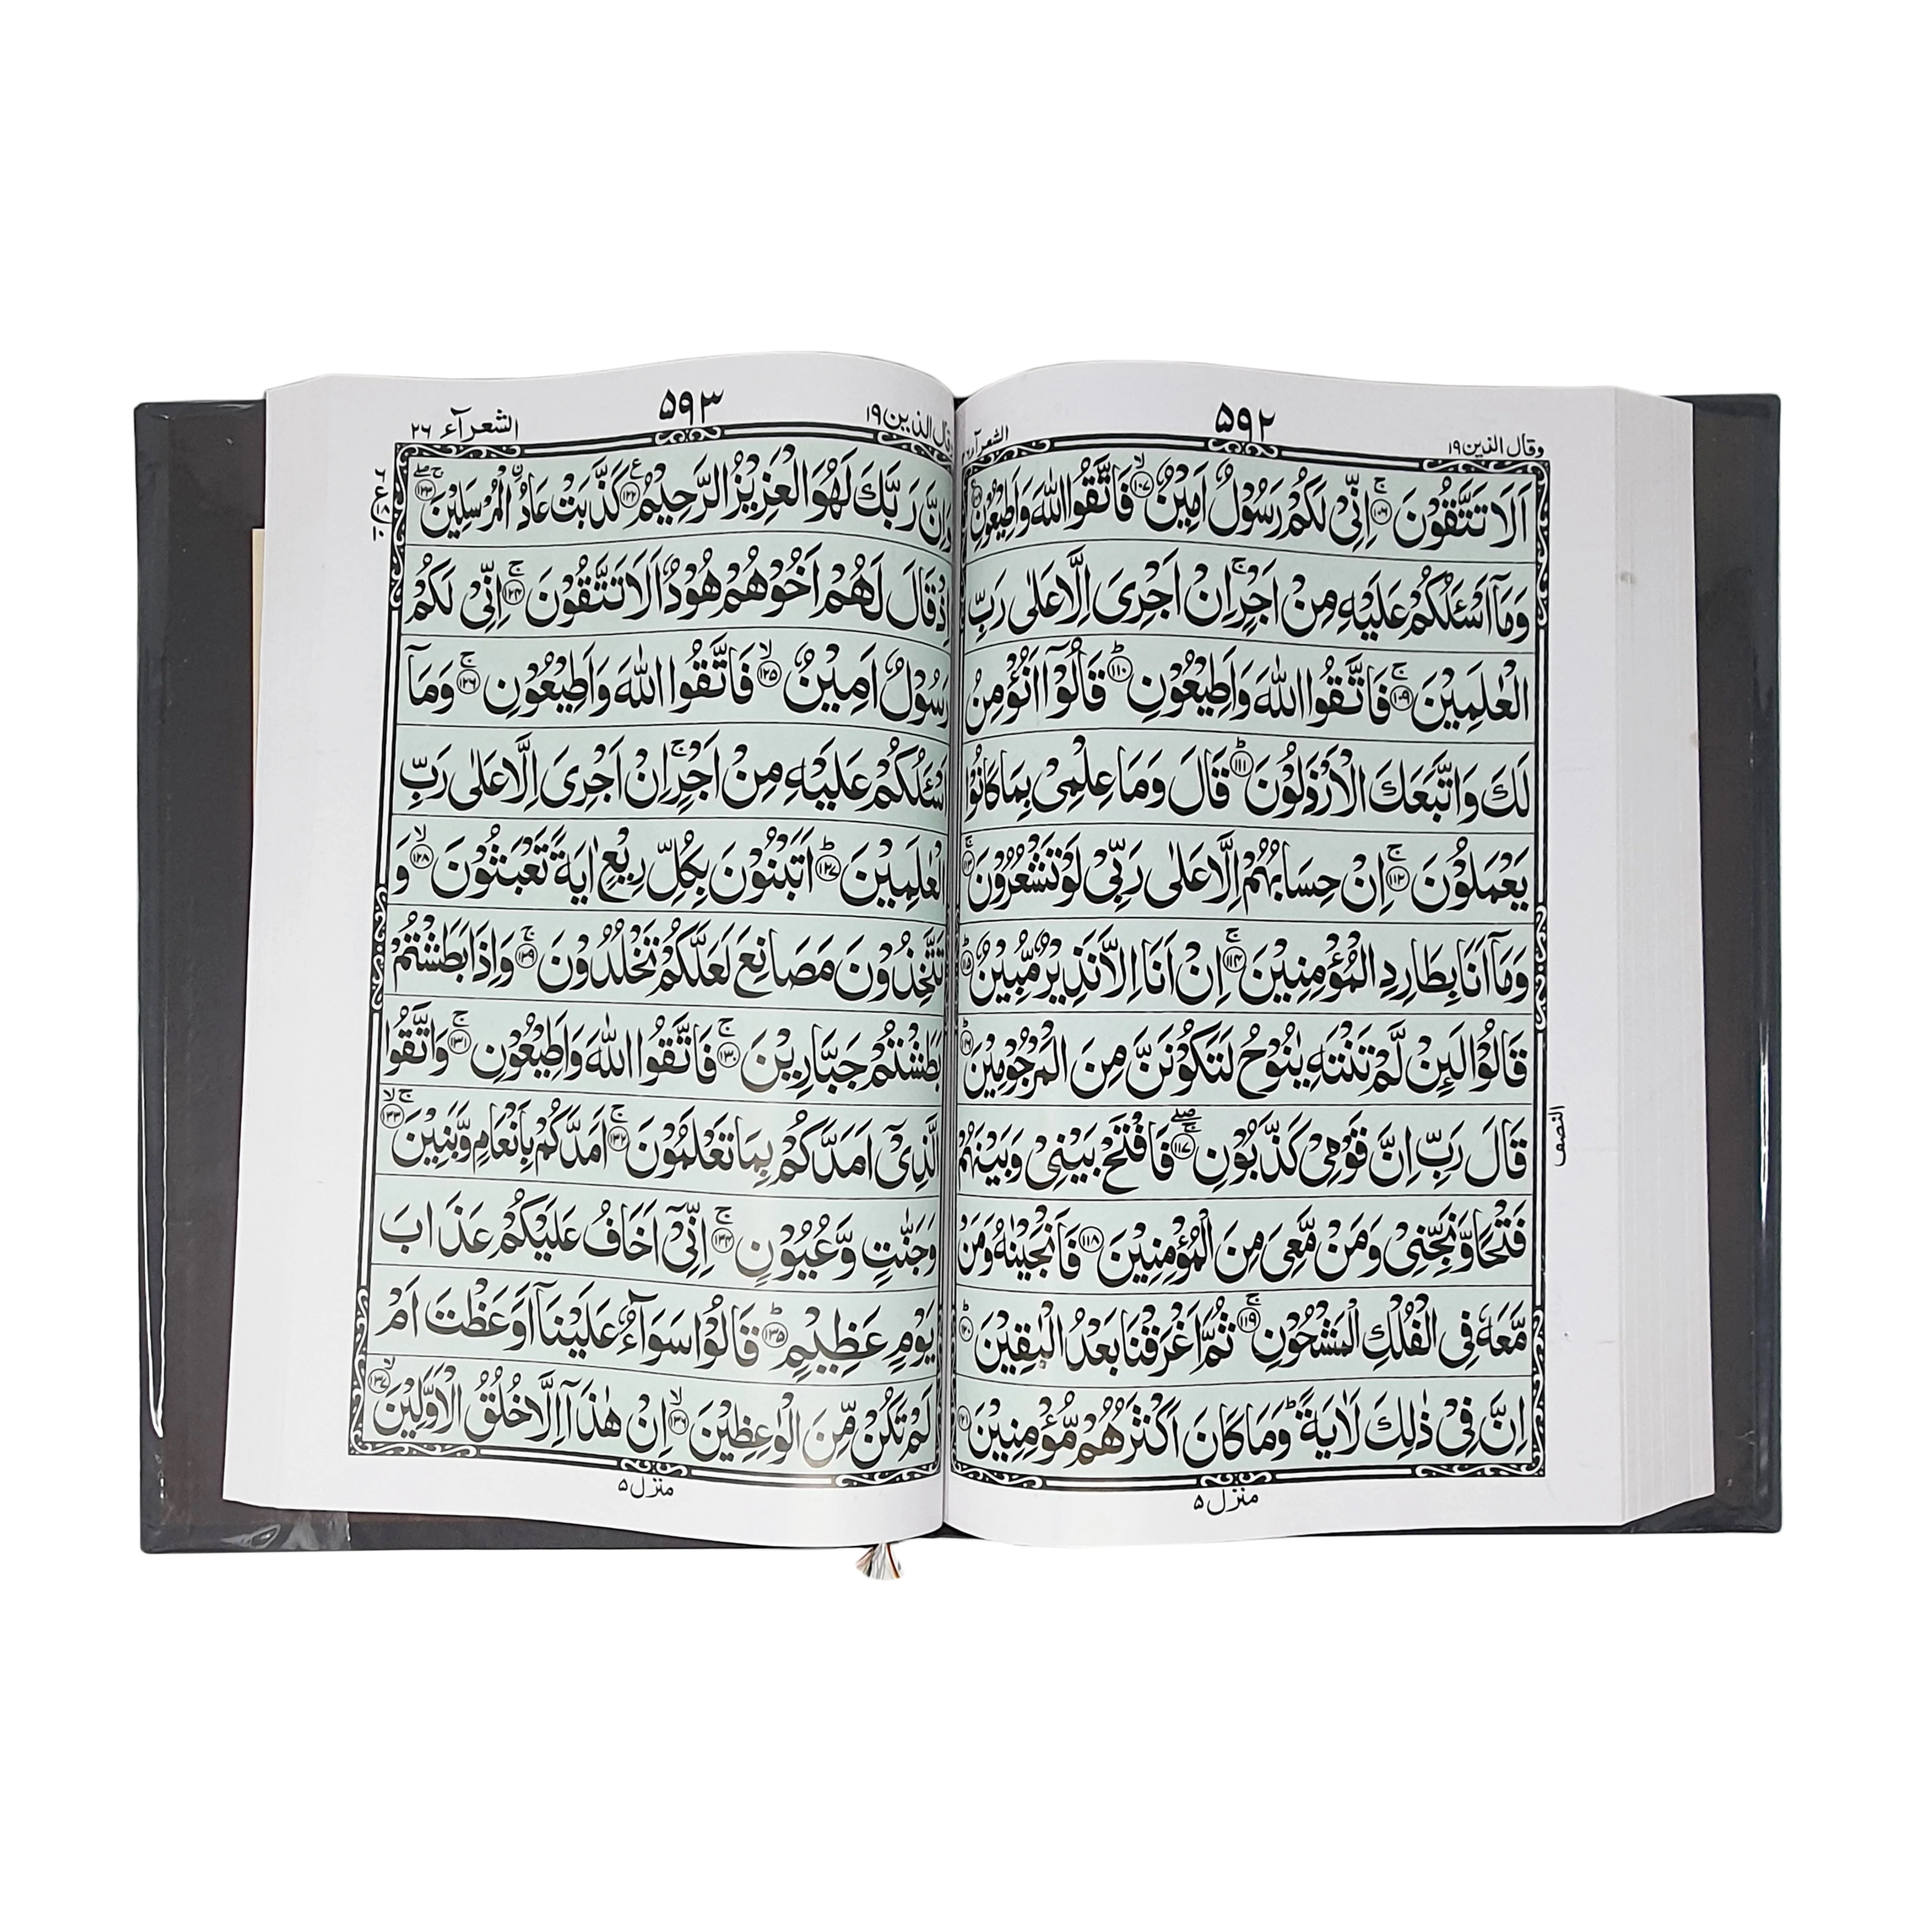 وقال الذين ۱۹
۵۹۲
الشعرآء
اَلَا تَتَّقُوْنَ ۚ﴿۱۰۶﴾ اِنِّیْ لَکُمْ رَسُوْلٌ اَمِیْنٌ ۙ﴿۱۰۷﴾ فَاتَّقُوا اللّٰهَ وَاَطِیْعُوْنِ
وَمَاۤ اَسْـَٔلُکُمْ عَلَیْهِ مِنْ اَجْرٍ ۚ اِنْ اَجْرِیَ اِلَّا عَلٰی رَبِّ
الْعٰلَمِیْنَ ۚ﴿۱۰۹﴾ فَاتَّقُوا اللّٰهَ وَاَطِیْعُوْنِ ؕ﴿۱۱۰﴾ قَالُوْۤا اَنُؤْمِنُ
لَکَ وَاتَّبَعَکَ الْاَرْذَلُوْنَ ؕ﴿۱۱۱﴾ قَالَ وَمَا عِلْمِیْ بِمَا کَانُوْا
یَعْمَلُوْنَ ۚ﴿۱۱۲﴾ اِنْ حِسَابُهُمْ اِلَّا عَلٰی رَبِّیْ لَوْ تَشْعُرُوْنَ ۚ﴿۱۱۳﴾
وَمَاۤ اَنَا بِطَارِدِ الْمُؤْمِنِیْنَ ۚ﴿۱۱۴﴾ اِنْ اَنَا اِلَّا نَذِیْرٌ مُّبِیْنٌ ؕ﴿۱۱۵﴾
قَالُوْا لَئِنْ لَّمْ تَنْتَهِ یٰنُوْحُ لَتَکُوْنَنَّ مِنَ الْمَرْجُوْمِیْنَ ؕ﴿۱۱۶﴾
قَالَ رَبِّ اِنَّ قَوْمِیْ کَذَّبُوْنِ ۚۖ﴿۱۱۷﴾ فَافْتَحْ بَیْنِیْ وَبَیْنَهُمْ
النصف
فَتْحًا وَّنَجِّنِیْ وَمَنْ مَّعِیَ مِنَ الْمُؤْمِنِیْنَ ﴿۱۱۸﴾ فَاَنْجَیْنٰهُ وَمَنْ
مَّعَهٗ فِی الْفُلْکِ الْمَشْحُوْنِ ۚ﴿۱۱۹﴾ ثُمَّ اَغْرَقْنَا بَعْدُ الْبٰقِیْنَ ؕ﴿۱۲۰﴾
اِنَّ فِیْ ذٰلِکَ لَاٰیَةً ؕ وَمَا کَانَ اَکْثَرُهُمْ مُّؤْمِنِیْنَ ﴿۱۲۱﴾
منزل ۵
وقال الذين ۱۹
۵۹۳
الشعرآء ۲۶
وَاِنَّ رَبَّکَ لَهُوَ الْعَزِیْزُ الرَّحِیْمُ ﴿۱۲۲﴾ع کَذَّبَتْ عَادُ ۨالْمُرْسَلِیْنَ ۚۖ﴿۱۲۳﴾
اِذْ قَالَ لَهُمْ اَخُوْهُمْ هُوْدٌ اَلَا تَتَّقُوْنَ ۚ﴿۱۲۴﴾ اِنِّیْ لَکُمْ
رَسُوْلٌ اَمِیْنٌ ۙ﴿۱۲۵﴾ فَاتَّقُوا اللّٰهَ وَاَطِیْعُوْنِ ۚ﴿۱۲۶﴾ وَمَاۤ
اَسْـَٔلُکُمْ عَلَیْهِ مِنْ اَجْرٍ ۚ اِنْ اَجْرِیَ اِلَّا عَلٰی رَبِّ
الْعٰلَمِیْنَ ؕ﴿۱۲۷﴾ اَتَبْنُوْنَ بِکُلِّ رِیْعٍ اٰیَةً تَعْبَثُوْنَ ۙ﴿۱۲۸﴾ وَ
تَتَّخِذُوْنَ مَصَانِعَ لَعَلَّکُمْ تَخْلُدُوْنَ ۚ﴿۱۲۹﴾ وَاِذَا بَطَشْتُمْ
بَطَشْتُمْ جَبَّارِیْنَ ۚ﴿۱۳۰﴾ فَاتَّقُوا اللّٰهَ وَاَطِیْعُوْنِ ۚ﴿۱۳۱﴾ وَاتَّقُوا
الَّذِیْۤ اَمَدَّکُمْ بِمَا تَعْلَمُوْنَ ۚ﴿۱۳۲﴾ اَمَدَّکُمْ بِاَنْعَامٍ وَّبَنِیْنَ ۚۙ﴿۱۳۳﴾
وَجَنّٰتٍ وَّعُیُوْنٍ ۚ﴿۱۳۴﴾ اِنِّیْۤ اَخَافُ عَلَیْکُمْ عَذَابَ
یَوْمٍ عَظِیْمٍ ؕ﴿۱۳۵﴾ قَالُوْا سَوَآءٌ عَلَیْنَاۤ اَوَعَظْتَ اَمْ
لَمْ تَکُنْ مِّنَ الْوٰعِظِیْنَ ۙ﴿۱۳۶﴾ اِنْ هٰذَاۤ اِلَّا خُلُقُ الْاَوَّلِیْنَ ۙ﴿۱۳۷﴾
منزل ۵